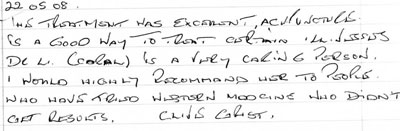 22 05 08.
THIS TREATMENT WAS EXCELLENT, ACUPUNCTURE
IS A GOOD WAY TO TREAT CERTAIN ILLNESSES
DR L. (CORAL) IS A VERY CARING PERSON.
I WOULD HIGHLY RECOMMAND HER TO PEOPLE.
WHO HAVE TRIED WESTERN MEDICINE WHO DIDN'T
GET RESULTS. CLIVE